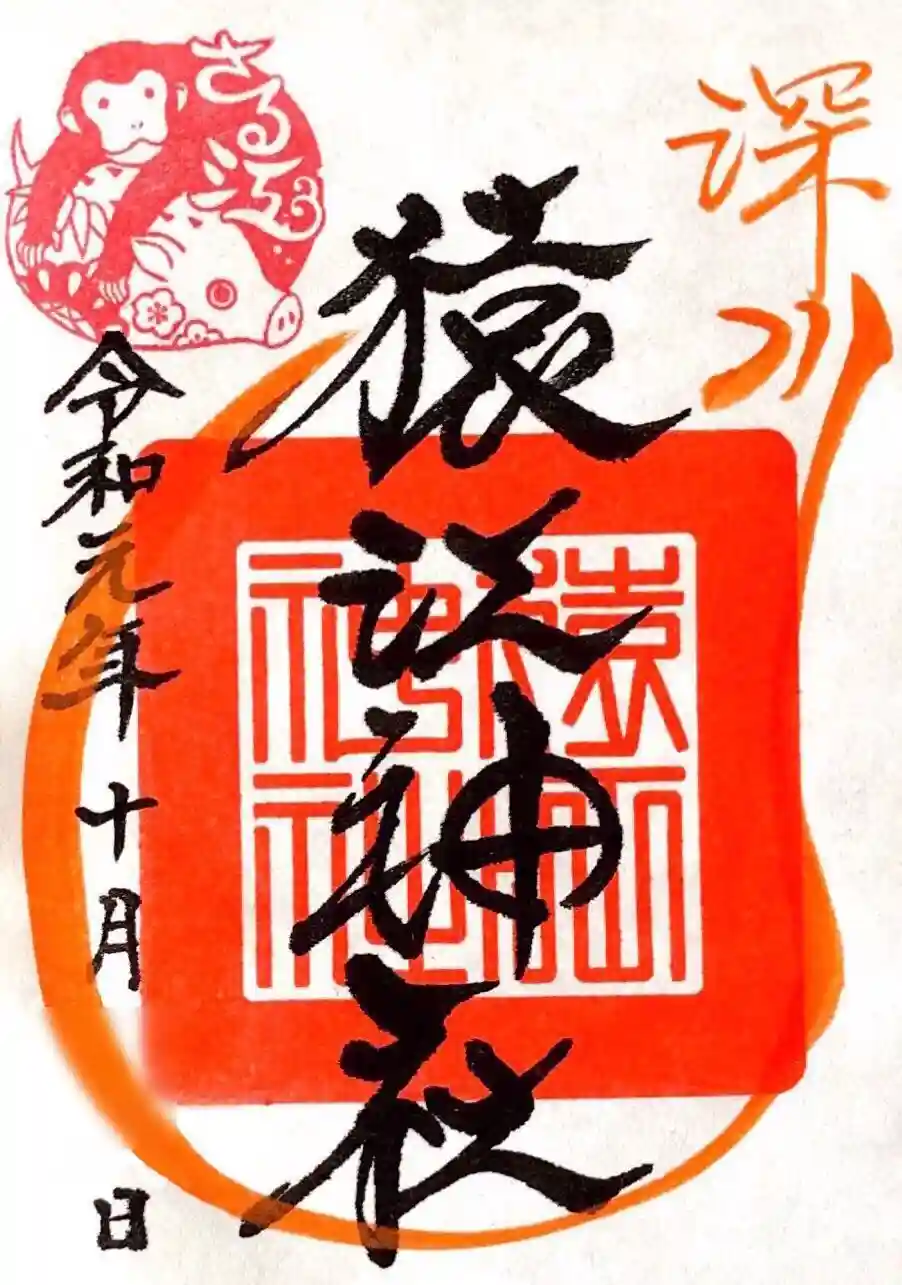 深川
猿江神社
猿江
神社
さる江
令和元年十月 日